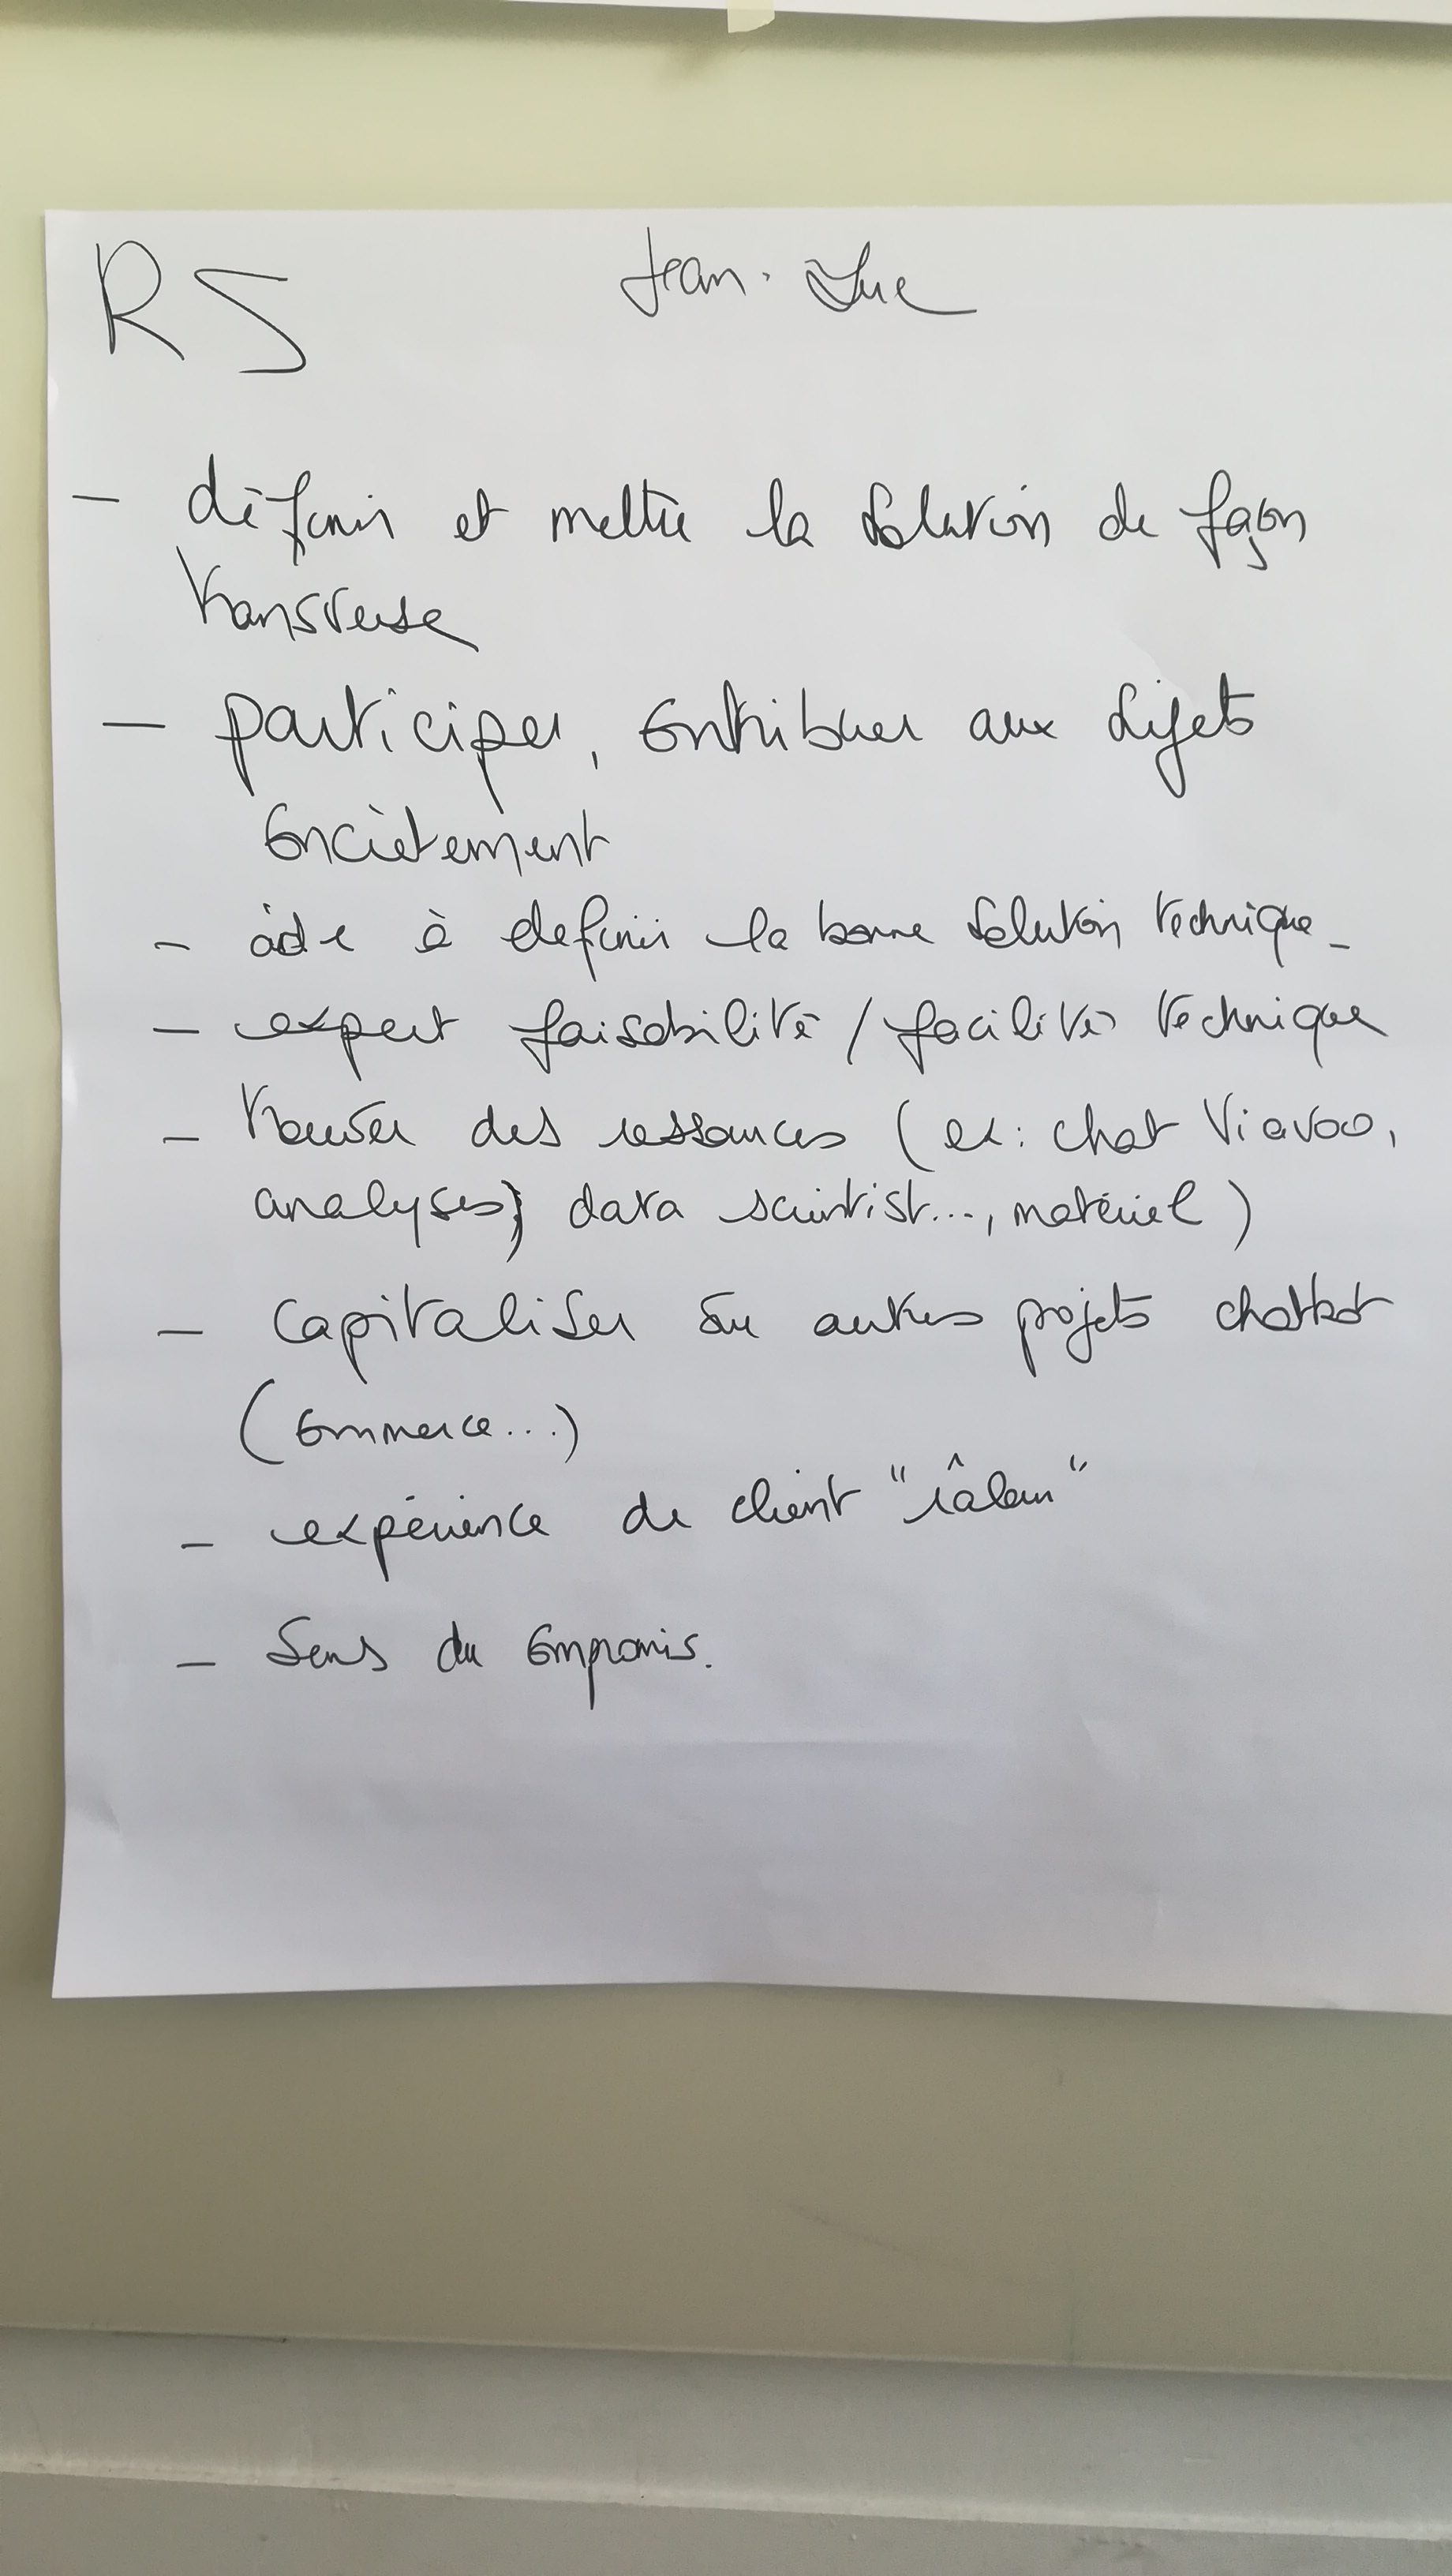 RS Jean-Luc
- définir et mettre la solution de façon
transverse
- participer, contribuer aux sujets
concrètement
- aide à definir la bonne solution technique -
- expert faisabilité / facilités technique
- trouver des ressources (ex: chat Viavoo,
analyses, data scientist..., matériel)
- capitaliser sur autres projets chatbot
(commerce...)
- expérience de client "râleur"
- Sens du compromis.